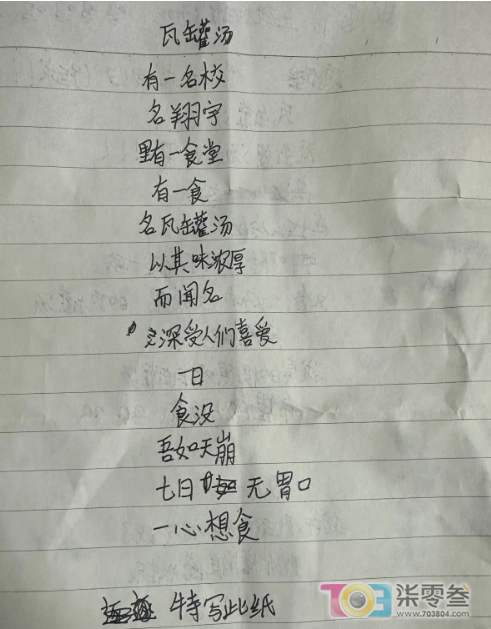 瓦罐汤
有一名校
名翔宇
里有一食堂
有一食
名瓦罐汤
以其味浓厚
而闻名
深受人们喜爱
一日
食没
吾如天崩
七日无胃口
一心想食
特写此纸
703 柒零叁
www.703804.com